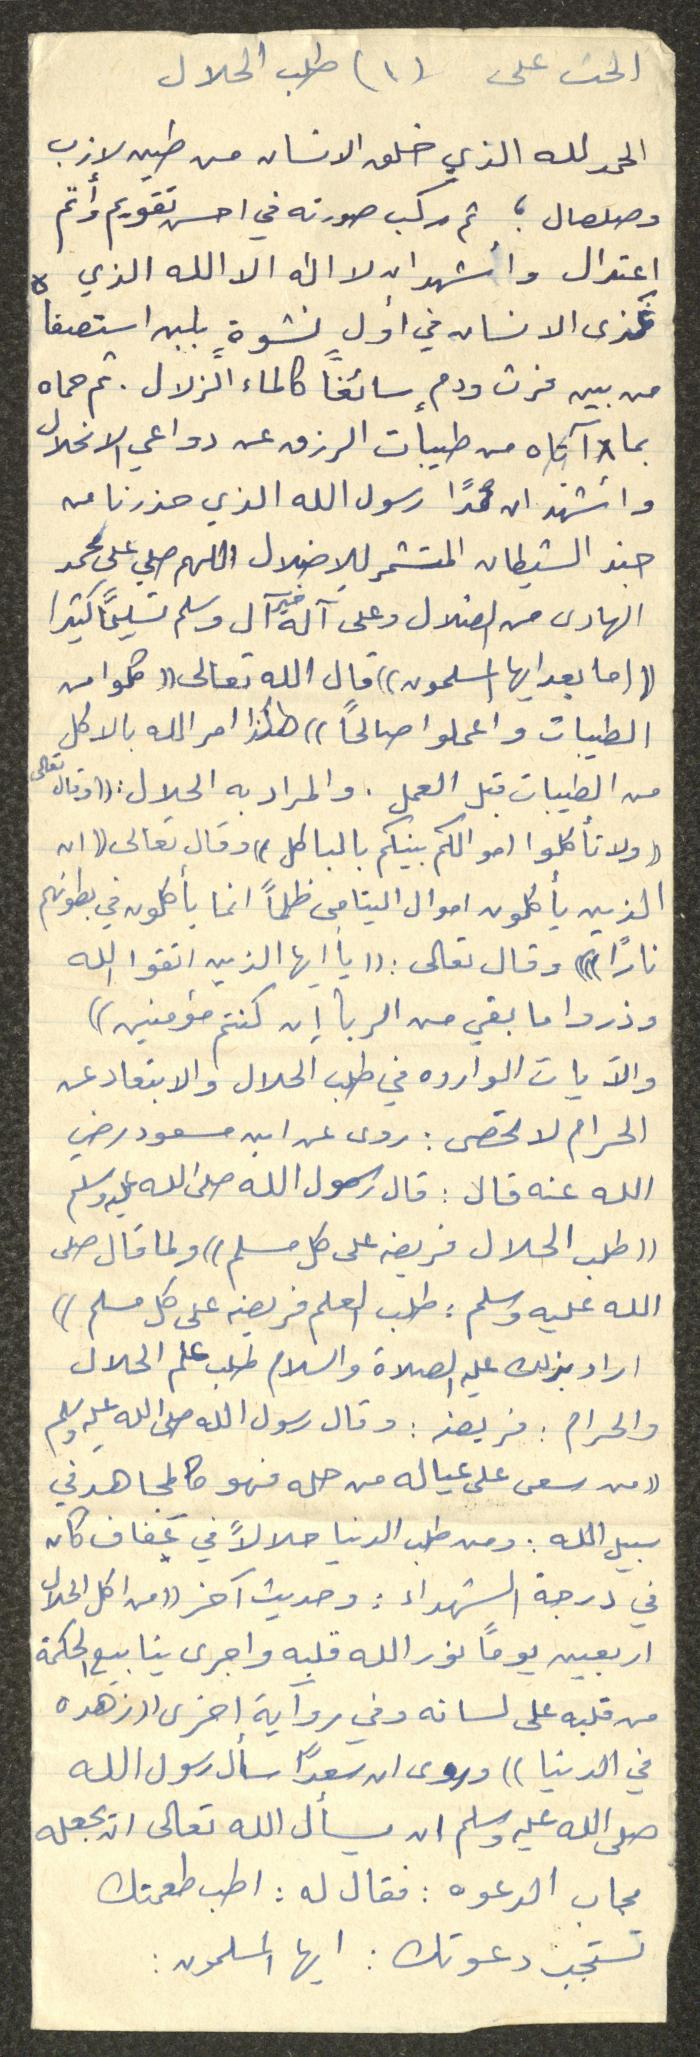 الحث على (١) طلب الحلال
الحمد لله الذي خلق الانسان من طين لازب
وصلصال ؛ ثم ركب صورته في احسن تقويم وأتم
اعتدال وأشهد ان لا اله الا الله الذي
غذى الانسان في أول نشوةٍ بلبن استصفاه
من بين فرث ودمٍ سائغاً كالماء الزلال . ثم حماه
بما آتاه من طيبات الرزق عن دواعي الانحلال
واشهد ان محمدًا رسول الله الذي حذرنا من
جند الشيطان المتشمر للإضلال اللهم صلي على محمد
الهادى من الضلال وعلى آله خير آل وسلم تسليمًا كثيرا
((اما بعد ايها المسلمون)) قال الله تعالى ((كلوا من
الطيبات واعملوا صالحاً)) هكذا امر الله بالاكل
من الطيبات قبل العمل . والمراد به الحلال : ((وقال تعالى
((ولا تأكلوا اموالكم بينكم بالباطل)) وقال تعالى ((ان
الذين يأكلون اموال اليتامى ظلماً انما يأكلون في بطونهم
نارًا)) وقال تعالى : ((يا ايها الذين اتقوا الله
وذروا ما بقي من الربا إن كنتم مؤمنين))
والآيات الوارده في طلب الحلال والابتعاد عن
الحرام لا تحصى : روى عن ابن مسعود رضي
الله عنه قال : قال رسول الله صلى الله عليه وسلم
((طلب الحلال فريضه على كل مسلم)) ولما قال صلى
الله عليه وسلم : طلب العلم فريضه على كل مسلم))
اراد بذلك عليه الصلاة والسلام طلب علم الحلال
والحرام : فريضه : وقال رسول الله صلى الله عليه وسلم
((من سعى على عياله من حله فهو كالمجاهد في
سبيل الله : ومن طلب الدنيا حلالاً في عفاف كان
في درجة الشهداء : وحديث آخر ((من اكل الحلال
اربعين يوماً نور الله قلبه واجرى ينابيع الحكمة
من قلبه على لسانه وفي رواية اخرى ((زهده
في الدنيا)) وروى ان سعدًا سأل رسول الله
صلى الله عليه وسلم ان يسأل الله تعالى ان يجعله
مجاب الدعوه : فقال له : اطب طعمتك
تستجب دعوتك : ايها المسلمون :